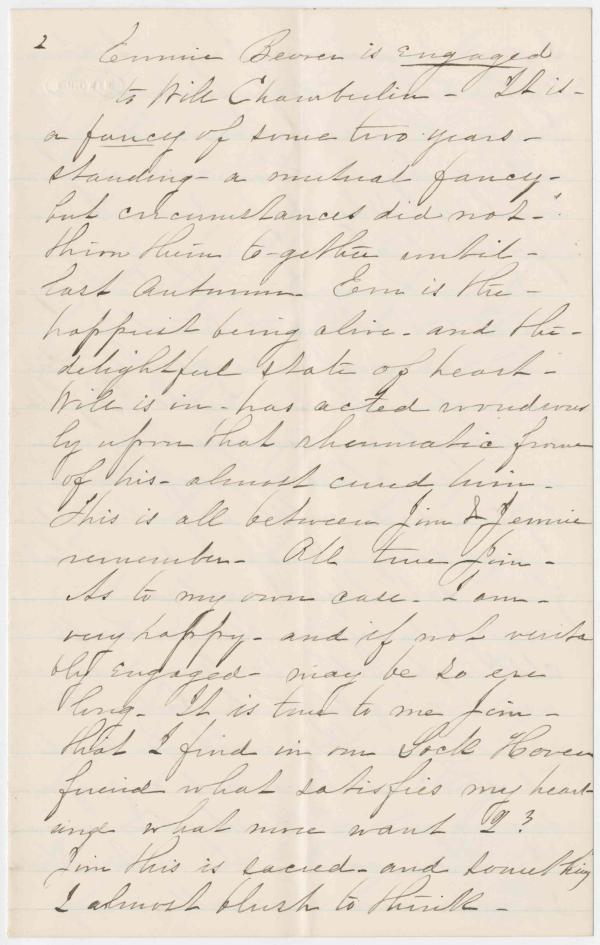 2
Emmie Beaver is engaged
to Will Chamberlin - It is -
a fancy of some two years -
standing - a mutual fancy -
but circumstances did not -
throw them to-gether until -
last Autumn. Em is the -
happiest being alive - and the -
delightful state of heart -
Will is in - has acted wondrous
ly upon that rheumatic frame
of his - almost cured him -
This is all between Jim & Jennie
remember - All true Jim -
As to my own case - I am -
very happy - and if not verita
bly engaged - may be so ere
long - It is true to me Jim -
that I find in our Lock Haven
friend what satisfies my heart
and what more want I?
Jim this is sacred - and something
I almost blush to think -